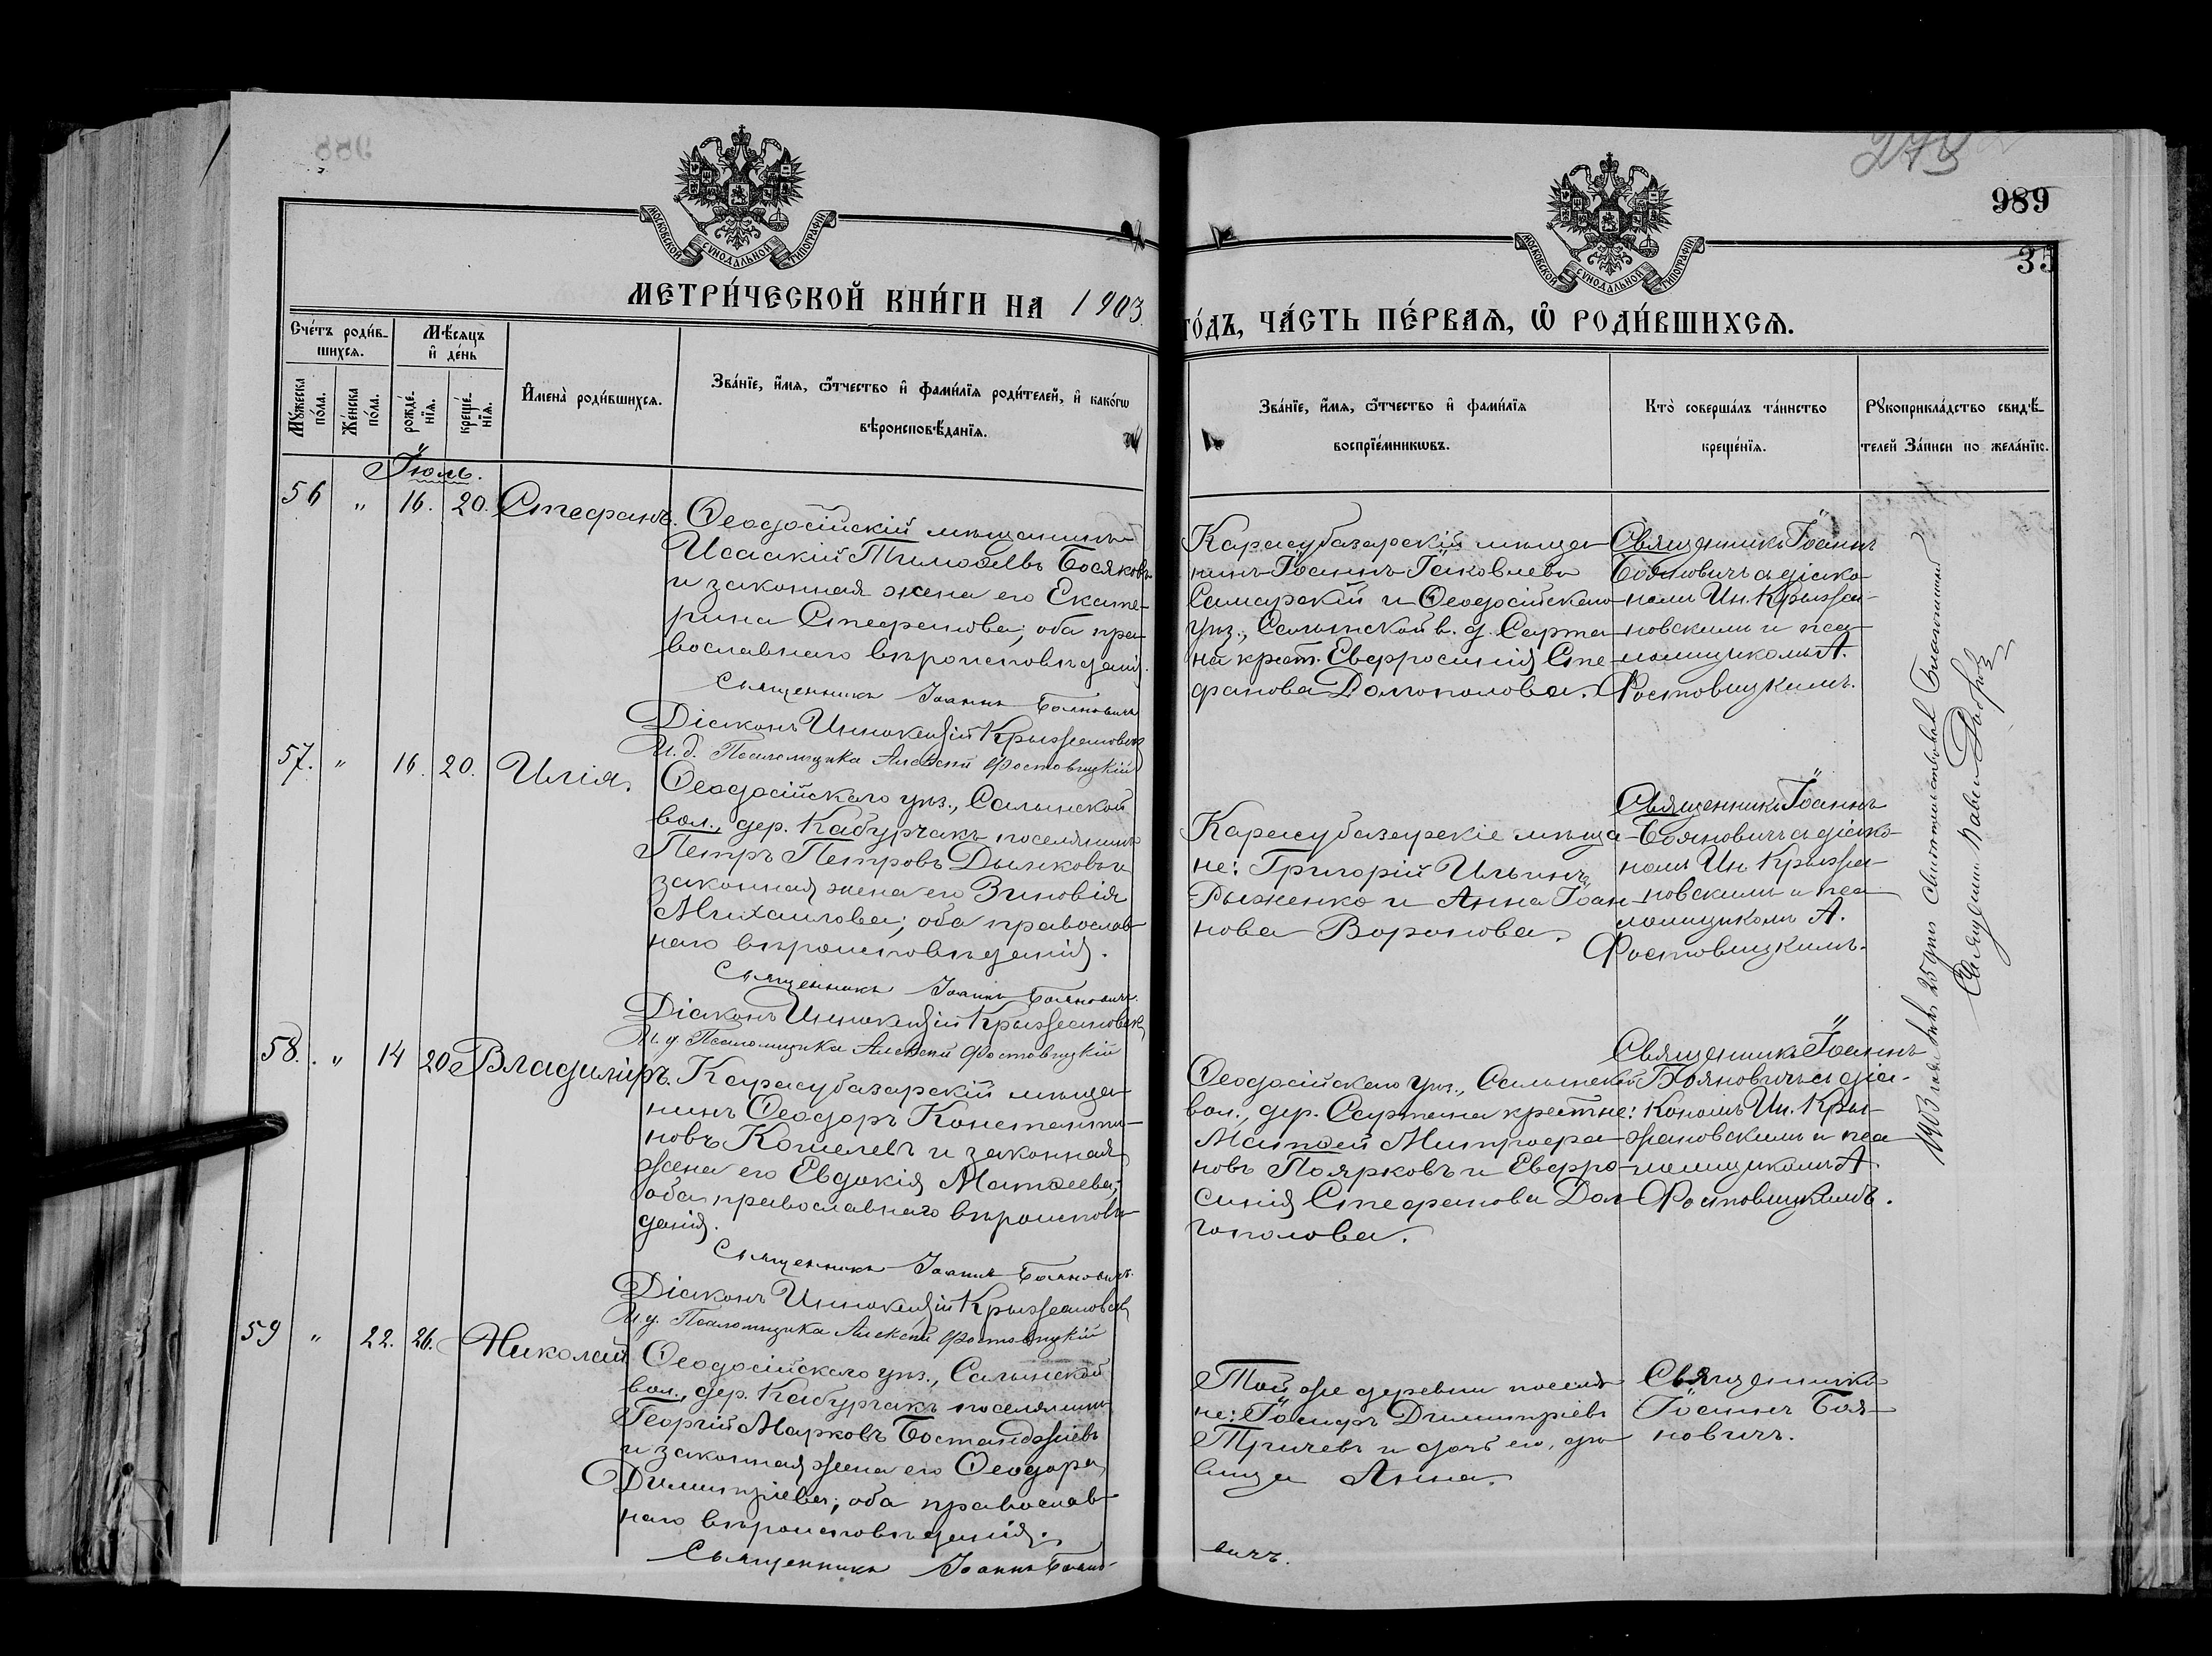 989
278
МОСКОВСКОЙ СѴНОДАЛЬНОЙ ТИПОГРАФІИ
МОСКОВСКОЙ СѴНОДАЛЬНОЙ ТИПОГРАФІИ
35
МЕТРИ́ЧЕСКОЙ КНИ́ГИ НА 1903
ГО́ДЪ, ЧА́СТЬ ПЕ́РВАѦ, Ѡ҆ РОДИ́ВШИХСѦ.
Сче́тъ роди́в-
шихсѧ.
Мѣ́сѧцъ
и҆ де́нь
Мꙋ́жеска
по́ла.
Же́нска
по́ла.
рожде́-
нїѧ.
креще́-
нїѧ.
И҆мена̀ роди́вшихсѧ.
Зва́нїе, и҆́мѧ, ѻ҆́тчество и҆ фами́лїѧ роди́телей, и҆ како́гѡ
вѣроисповѣ́данїѧ.
Зва́нїе, и҆́мѧ, ѻ҆́тчество и҆ фами́лїѧ
воспрїе́мникѡвъ.
Кто̀ соверша́лъ та́инство
креще́нїѧ.
Рꙋкоприкла́дство свидѣ́-
телей за́писи по жела́нїю.
Іюль.
56 " 16. 20. Стефанъ.
Ѳеодосійскій мѣщанинъ
Исаакій Тимоѳеевъ Босяковъ
и законная жена его Екате-
рина Стефанова; оба пра-
вославнаго вѣроисповѣданія.
Священникъ Іоаннъ Бояновичъ
Діаконъ Иннокентій Крыжановск
И. д. Псаломщика Алексѣй Фостовицкій
Карасубазарскій мѣща-
нинъ Іоаннъ Іаковлевъ
Самарскій и Ѳеодосійскаго
уѣз., Салынской в. д. Сарта-
на крест. Евфросинія Сте-
фанова Долгополова.
Священникъ Іоаннъ
Бояновичъ съ діако-
номъ Ин. Крыжа-
новскимъ и пса-
ломщикомъ А.
Фостовицкимъ.
57. " 16. 20. Илія.
Ѳеодосійскаго уѣз., Салынской
вол., дер. Кабурчакъ поселянинъ
Петръ Петровъ Дымковъ и
законная жена его Зиновія
Михаилова; оба православ-
наго вѣроисповѣданія.
Священникъ Іоаннъ Бояновичъ.
Діаконъ Иннокентій Крыжановск
И. д. Псаломщика Алексѣй Фостовицкій
Карасубазарскіе мѣща-
не: Григорій Ильинъ
Рыженко и Анна Іоан-
нова Воронова.
Священникъ Іоаннъ
Бояновичъ съ діако-
номъ Ин. Крыжа-
новскимъ и пса-
ломщикомъ А.
Фостовицкимъ.
58. " 14 20 Владиміръ.
Карасубазарскій мѣща-
нинъ Ѳеодоръ Константи-
новъ Кошелевъ и законная
жена его Евдокія Матѳеева;
оба православнаго вѣроисповѣ-
данія.
Священникъ Іоаннъ Бояновичъ.
Діаконъ Иннокентій Крыжановск
И. д. Псаломщика Алексѣй Фостовицкій
Ѳеодосійскаго уѣз., Салынской
вол., дер. Сартана крестне:
Матѳей Митрофа-
новъ Поярковъ и Евфро-
синія Стефанова Дол-
гополова.
Священникъ Іоаннъ
Бояновичъ съ діа-
кономъ Ин. Кры-
жановскимъ и пса-
ломщикомъ А.
Фостовицкимъ.
59 " 22. 26. Николай
Ѳеодосійскаго уѣз., Салынской
вол., дер. Кабурчакъ поселянинъ
Георгій Марковъ Бостанджіевъ
и законная жена его Ѳеодора
Димитріева; оба православ-
наго вѣроисповѣданія.
Священникъ Іоаннъ Бояно-
вичъ.
Той же деревни поселя-
не: Іосифъ Димитріевъ
Тричевъ и дочь его, дѣ-
вица Анна.
Священникъ
Іоаннъ Боя-
новичъ.
1903 года 25 дня свидѣтельствовалъ Благочинный
Священникъ Павелъ